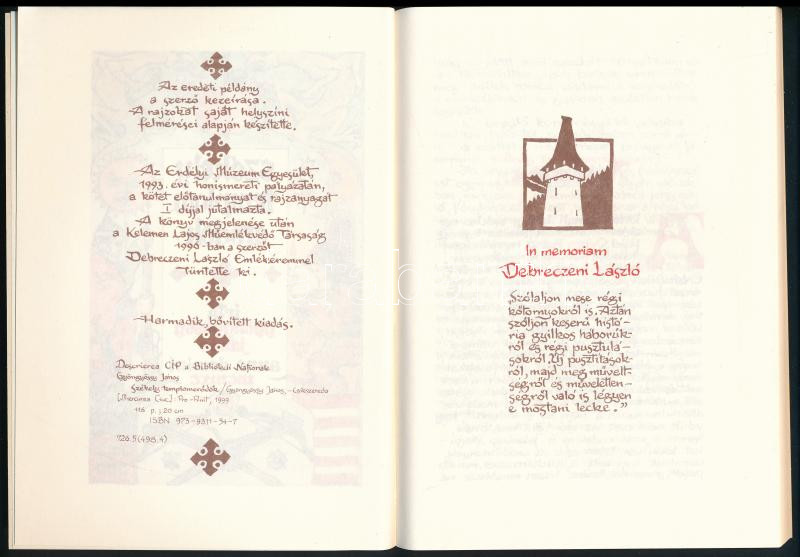 Az eredeti példány
a szerző kezeírása.
A rajzokat saját helyszíni
felmérései alapján készítette.
Az Erdélyi Múzeum Egyesület,
1993. évi honismereti pályázatán,
a kötet előtanulmányát és rajzanyagát
I díjjal jutalmazta.
A könyv megjelenése után
a Kelemen Lajos Műemlékvédő Társaság
1996-ban a szerzőt
Debreczeni László Emlékéremmel
tüntette ki.
Harmadik, bővített kiadás.
Descrierea CIP a Bibliotecii Naţionale
Gyöngyössy János
Székely templomerődök / Gyöngyössy János, - Csíkszereda
[Miercurea Ciuc]: Pro-Print, 1999
116 p.; 20 cm
ISBN 973-9311-54-7
726.5(498.4)
In memoriam
Debreczeni László
„Szólaljon mese régi
kőtornyokról is. Aztán
szóljon keserű histó-
ria gyilkos háborúk-
ról és régi pusztulá-
sokról. Új pusztítások-
ról, majd meg művelt-
ségről és műveletlen-
ségről való is légyen
e mostani lecke."